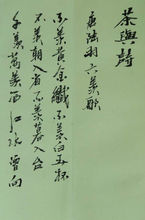 茶與詩
唐陸羽六羨歌
不羨黃金 不羨白玉杯
不羨朝入省 不羨暮入台
千羨萬羨西江水 曾向